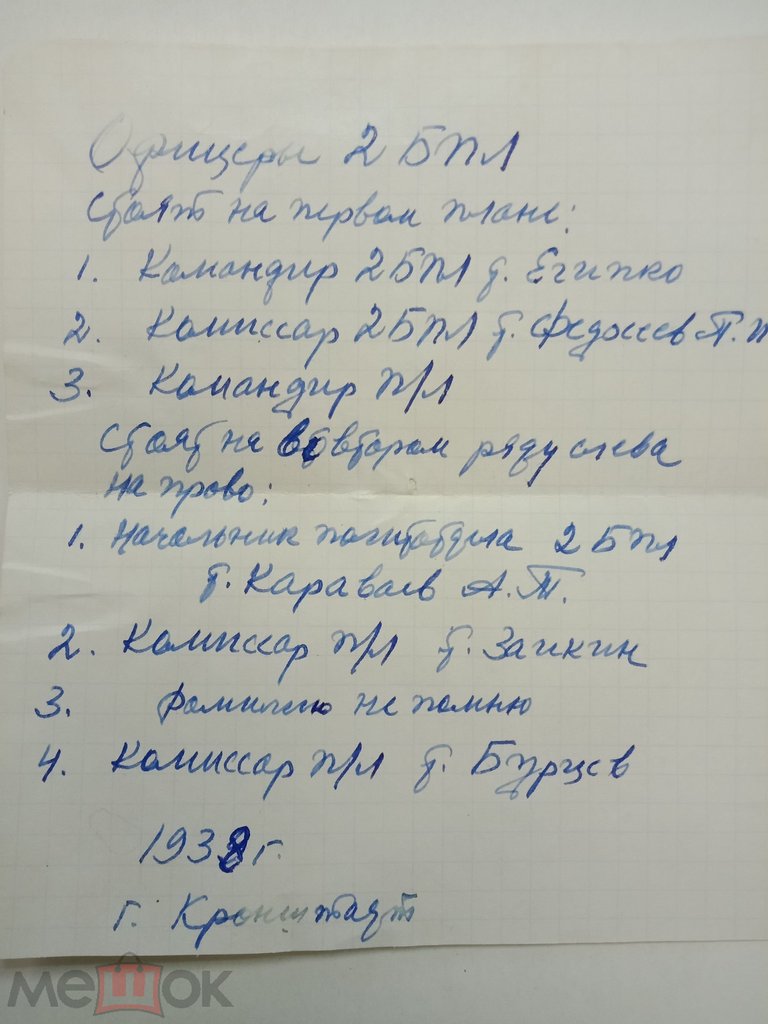 Офицеры 2 БПЛ
Стоят на первом плане:
1. Командир 2 БПЛ т. Египко
2. Комиссар 2 БПЛ т. Федосеев П.
3. Командир п/л
Стоят на во втором ряду слева
на право:
1. Начальник политотдела 2 БПЛ
т. Караваев А.Т.
2. Комиссар п/л т. Заикин
3. Фамилию не помню
4. Комиссар п/л т. Бурцев
1938 г.
г. Кронштадт
мешок